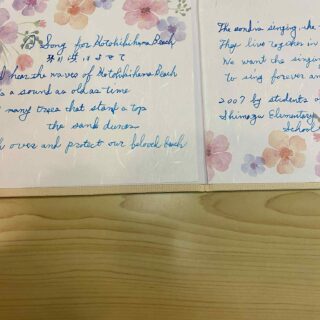 A Song for Kotohikihama Beach
hear the waves of Kotohikihama Beach
a sound as old as time
many trees that stand a top
the sand dunes
over and protect our beloved beach
The sand is singing, the
They live together in
We want the singing
To sing forever an
2007 by students o
Shimazu Elementary
School